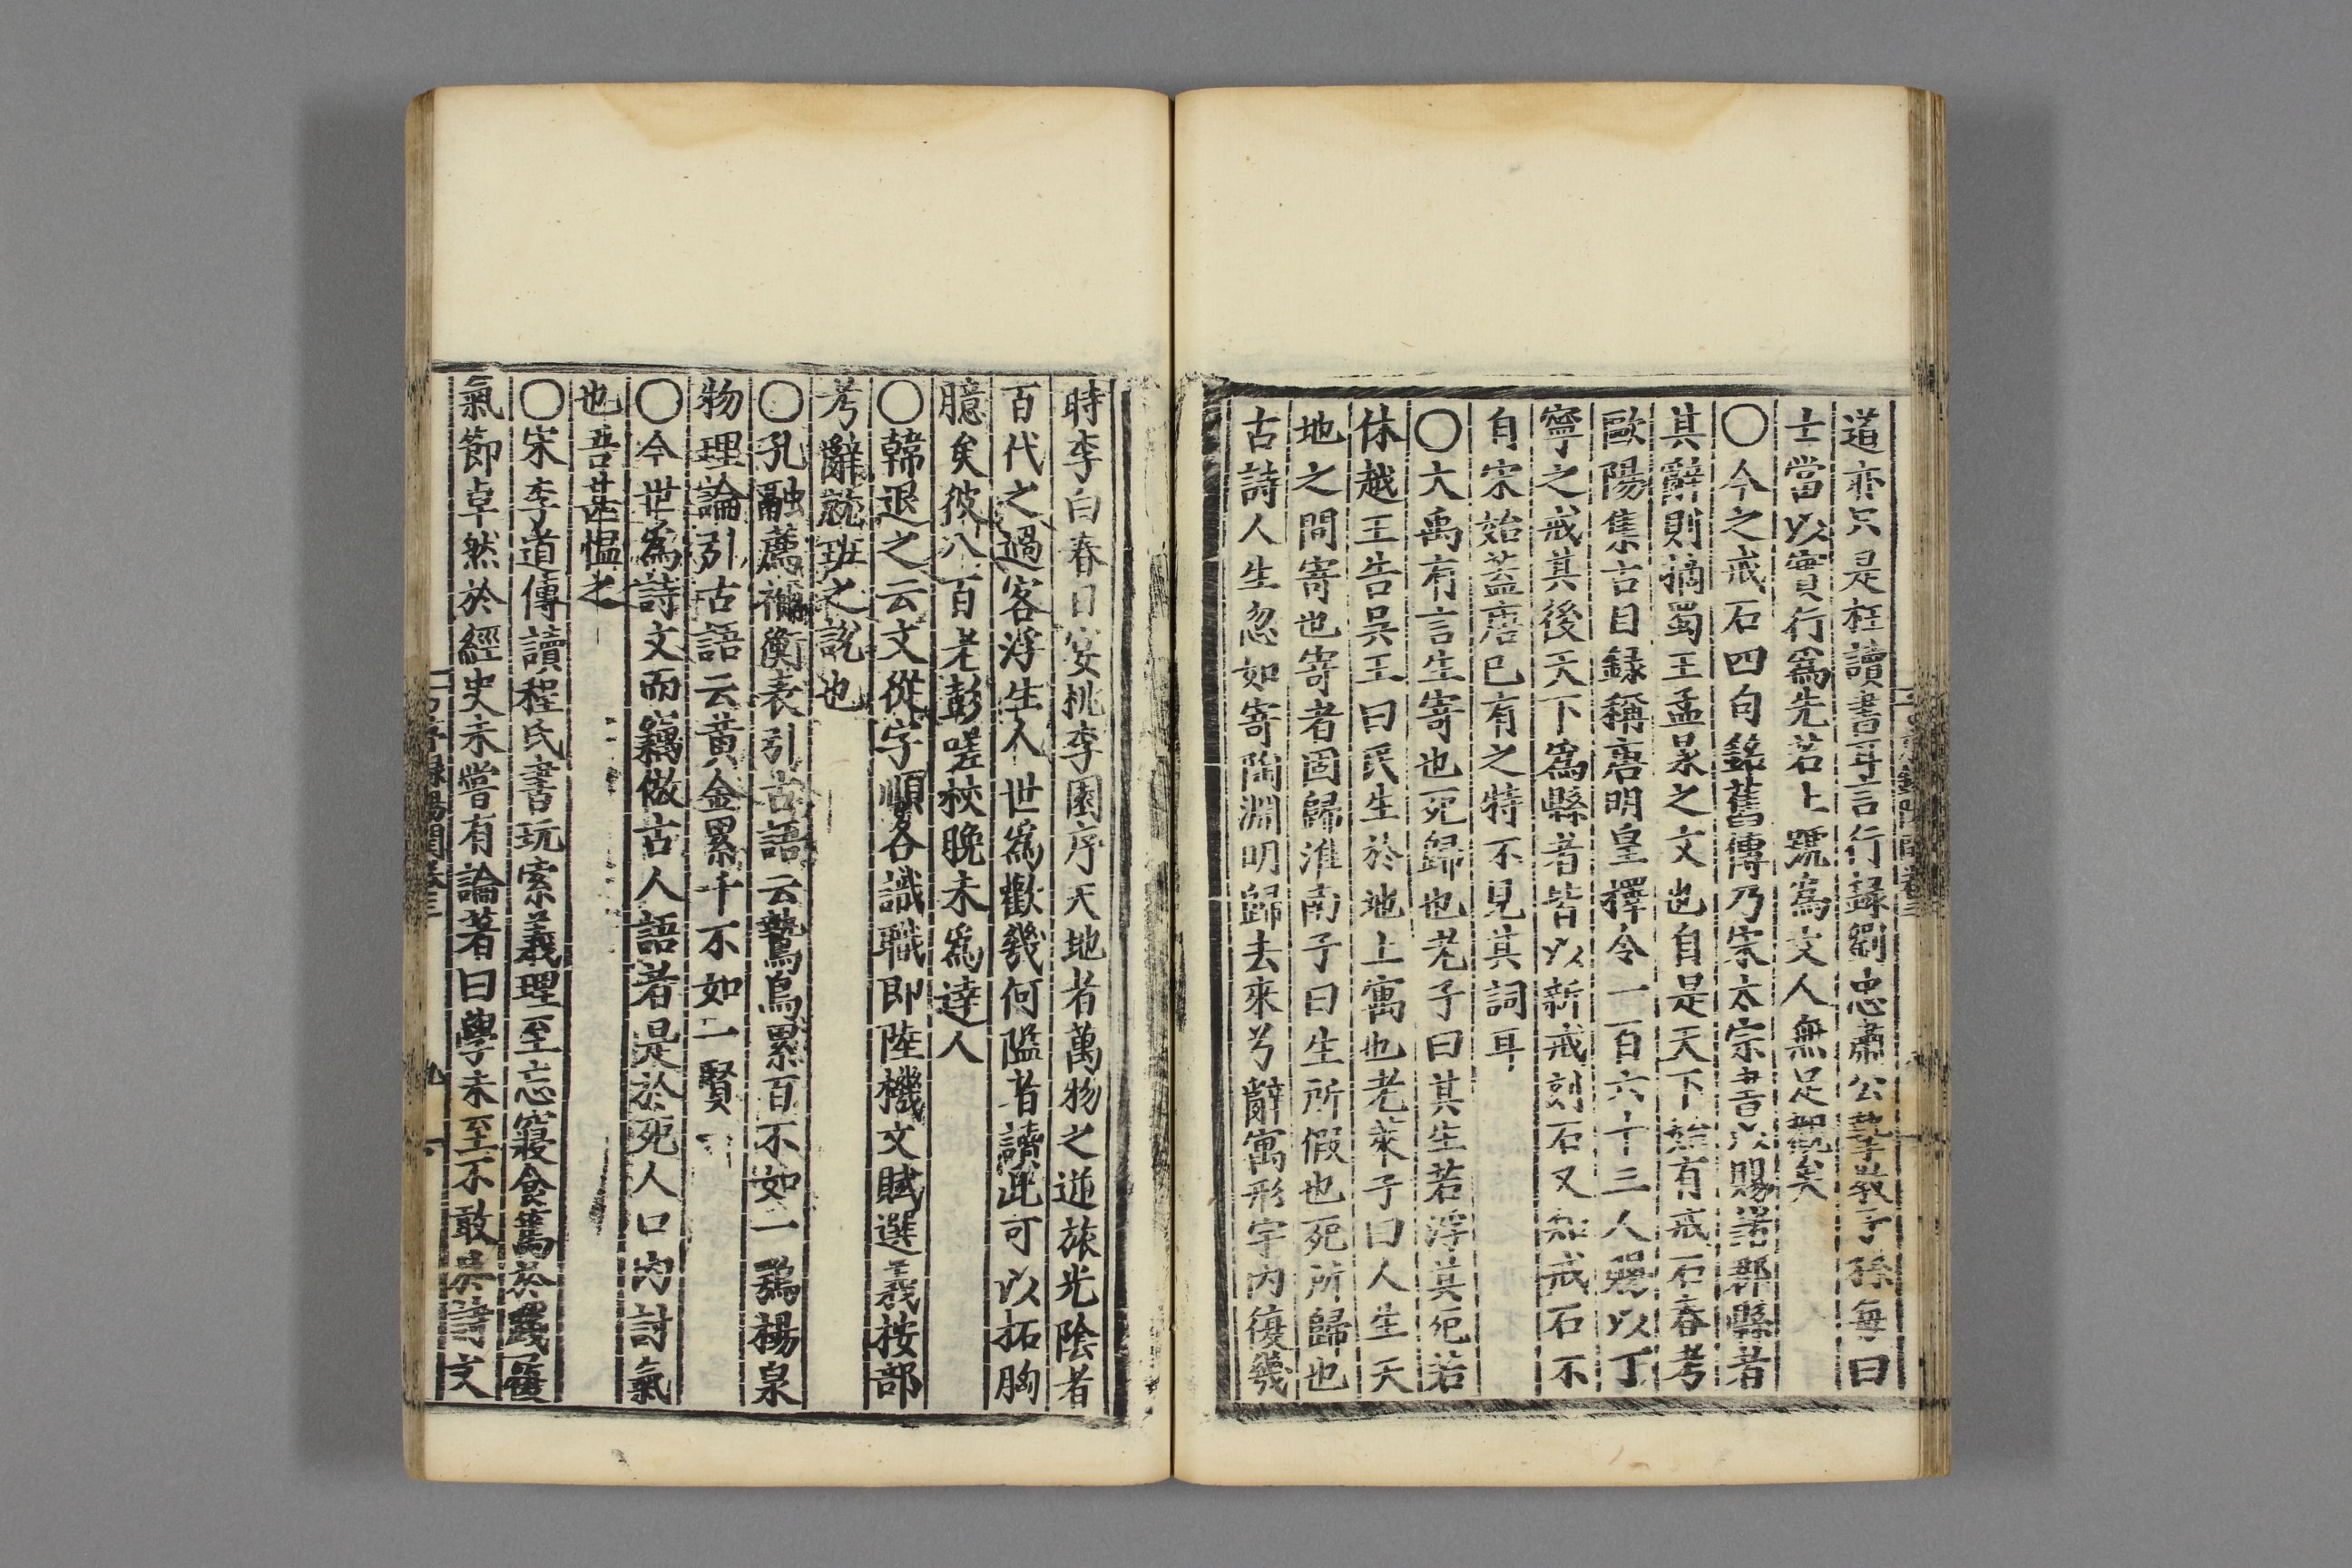 道亦只是枉讀書耳言行錄劉忠肅公摯敎子孫每曰
士當以實行爲先若上號爲文人無足觀矣
〇今之戒石四句銘舊傳乃宋太宗書以賜諸郡縣者
其辭則摘蜀王孟㫤之文也自是天下始有戒石春考
歐陽集古目錄稱唐明皇擇令一百六十三人賜以丁
寧之戒其後天下爲縣者皆以新戒刻石又知戒石不
自宋始蓋唐已有之特不見其詞耳
〇大禹有言生寄也死歸也老子曰其生若浮其死若
休越王告吳王曰民生於地上寓也老萊子曰人生天
地之間寄也寄者固歸淮南子曰生所假也死所歸也
古詩人生忽如寄陶淵明歸去來兮辭寓形宇內復幾
時李白春日宴桃李園序天地者萬物之逆旅光陰者
百代之過客浮生人世爲歡幾何隘者讀此可以拓胸
臆矣彼八百老彭嗟柍晚未爲達人
〇韓退之云文從字順各識職即陸機文賦選義按部
考辭就班之說也
〇孔融薦禰衡表引古語云鷙鳥累百不如一鶚楊泉
物理論引古語云黃金累千不如一賢
〇今世爲詩文而竊做古人語者是於死人口內討氣
也吾甚愠之
〇宋李道傳讀程氏書玩索義理至忘寢食篤於踐履
氣節卓然於經史未嘗有論著曰學未至不敢  詩文